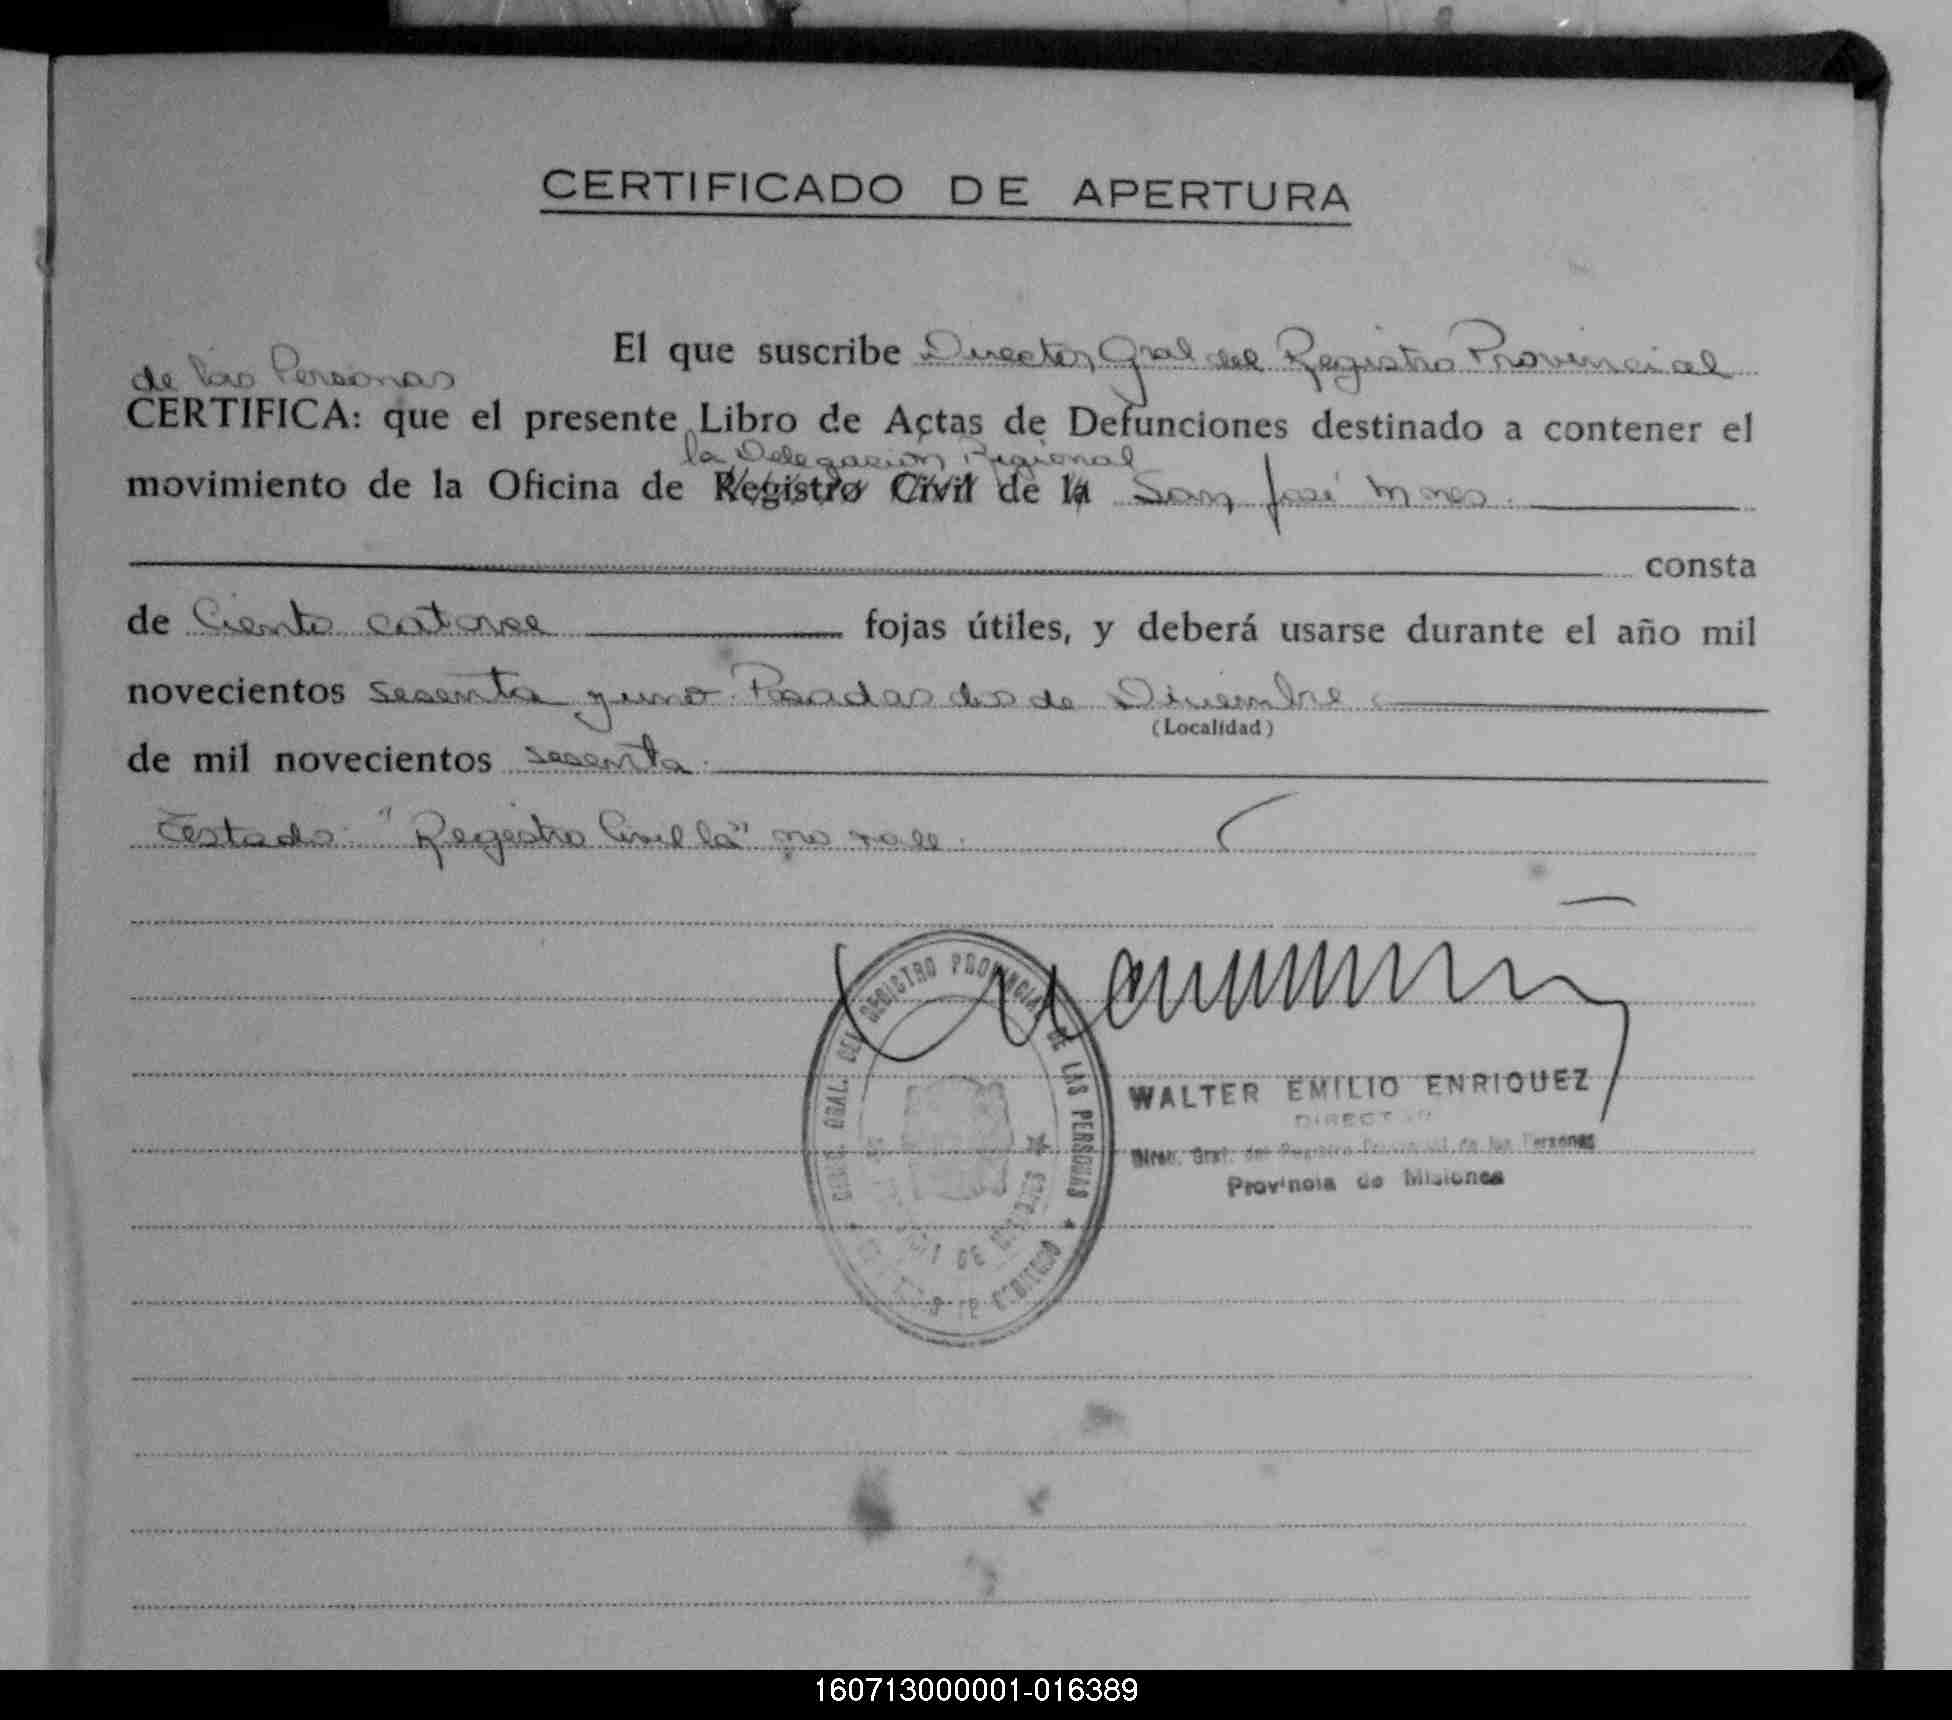 CERTIFICADO DE APERTURA
El que suscribe Director Gral del Registro Provincial
de las Personas
CERTIFICA: que el presente Libro de Actas de Defunciones destinado a contener el
la Delegación Regional
movimiento de la Oficina de Registro Civil de la San José Mnes.
consta
de Ciento catorce fojas útiles, y deberá usarse durante el año mil
novecientos sesenta y uno. Posadas dos de Diciembre
(Localidad)
de mil novecientos sesenta.
Testado: "Registro Civil la" no vale.
GRAL. DEL REGISTRO PROVINCIAL DE LAS PERSONAS
DE MISIONES
WALTER EMILIO ENRIQUEZ
DIRECTOR
Direc. Gral. del Registro Provincial de las Personas
Provincia de Misiones
160713000001-016389